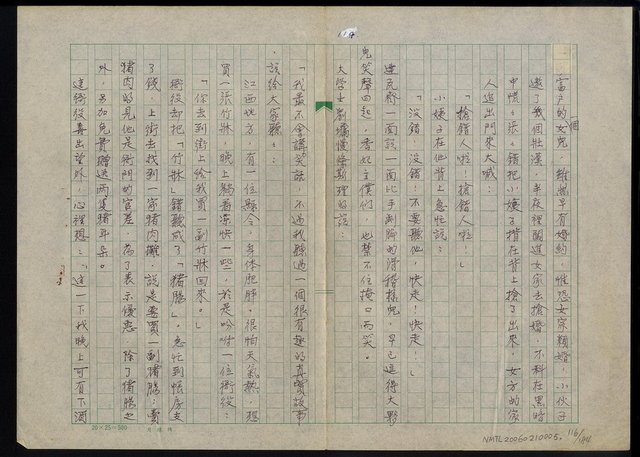 118
富戶的女兒，雖說早有婚約，惟恐女家賴婚，小伙子
個
邀了幾個壯漢，半夜裡闖進女家去搶婚，不料在黑暗
中慌慌張張，錯把小姨子揹在背上搶了出來，女方的家
人追出門來大喊：
「搶錯人啦！搶錯人啦！」
小姨子在他背上急忙說：
「沒錯！沒錯！不要聽他，快走！快走！」
達克齋一面說一面比手劃腳的滑稽樣兒，早已逗得大夥
兒笑聲四起，香妃主僕們，也禁不住掩口而笑。
大學士劉墉慢條斯理的說：
「我最不會講笑話，不過我聽過一個很有趣的真實故事
，說給大家聽：
江西地方，有一位縣令，身体肥胖，很怕天氣熱，想
買一張竹牀，晚上躺着涼快一些，於是吩咐一位衙役：
「你去到街上給我買一副竹牀回來。」
衙役卻把「竹牀」錯聽成了「豬腸」，急忙到帳房支
了錢，上街去找到一家豬肉攤，說是要買一副豬腸，賣
豬肉的見他是衙門的官差，為了表示優惠，除了豬腸之
外，另加免費贈送兩隻豬耳朵。
這衙役喜出望外，心裡想：「這一下我晚上可有下酒
20×25=500
NMTL20060210005
116/184